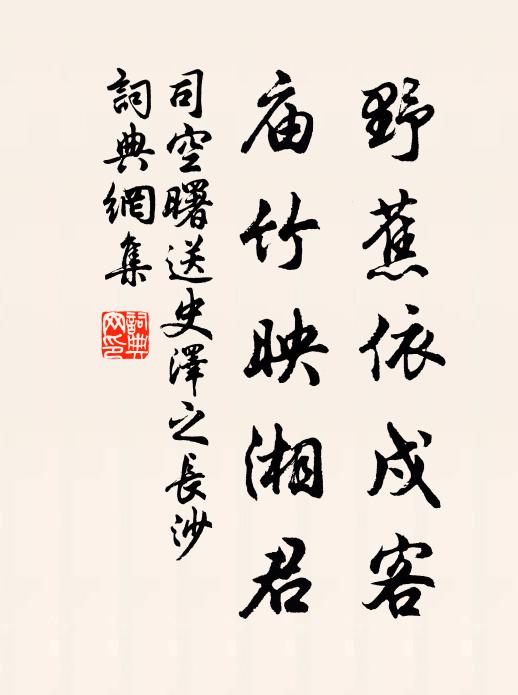 野蕉依戍客
庙竹映湘君
司空曙送史澤之長沙
詞典網集
詞典网印